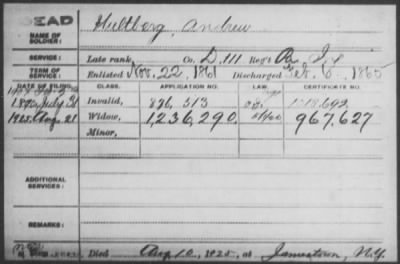 DEAD
NAME OF SOLDIER: Hultberg, Andrew
SERVICE: Late rank Co. D, 111 Reg't Pa. Inf
TERM OF SERVICE: Enlisted Nov. 22, 1861 Discharged Feb. 6, 1865
DATE OF FILING. CLASS. APPLICATION NO. LAW. CERTIFICATE NO.
July 31 Invalid, 896,313
1925. Aug. 21 Widow, 1,236,290. 967.627
Minor,
ADDITIONAL SERVICES:
REMARKS:
Died Aug 10, 1925, at Jamestown, N.Y.